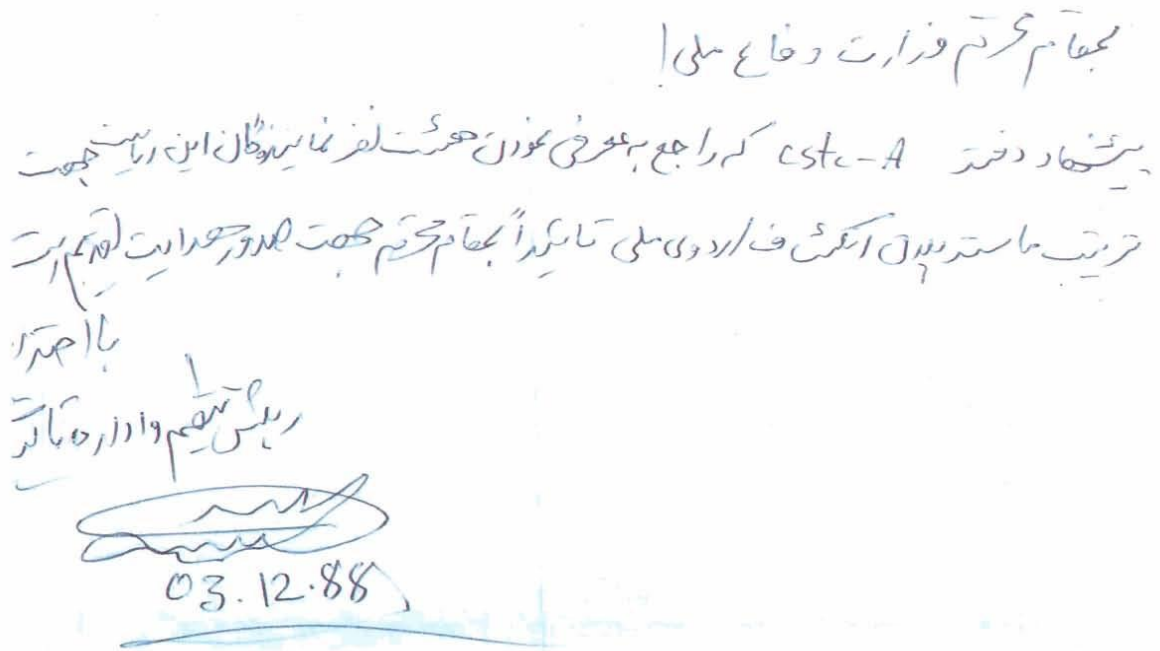 بمقام محترم وزارت دفاع ملی!
پیشنهاد دفتر cstc-A که راجع به معرفی نمودن هیئت نفر نمایندگان این ریاست جهت
تربیت ماستر اردوی ملی تائیداً بمقام محترم جهت صدور هدایت تقدیم است
با احترام
رئیس تنظیم و اداره
03.12.88